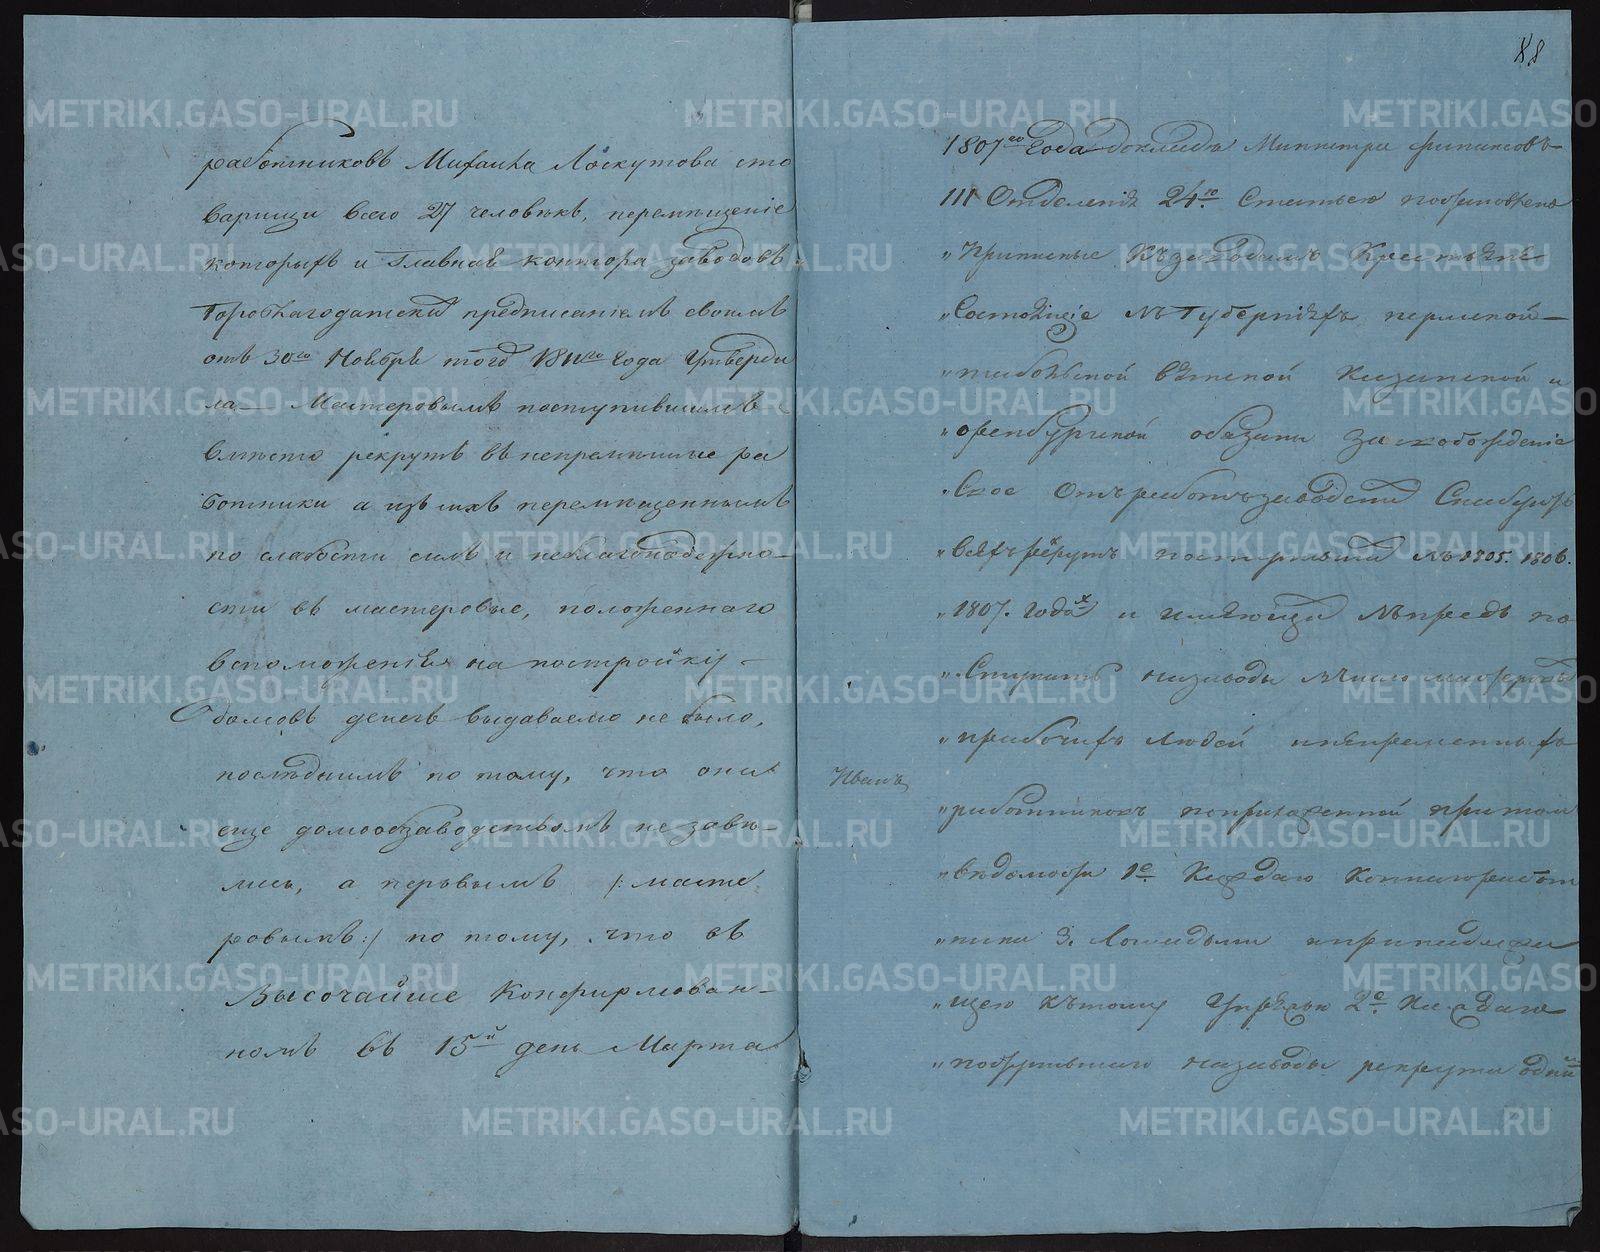 работниковъ Михаила Лоскутова сто
варищи всего 27 человѣкъ, перемѣщеніе
которыхъ и Главная контора заводовъ
Гороблагодатскихъ предписаніемъ своимъ
отъ 30го Ноября того 1811го Года Утверди
ла — Мастеровымъ поступившимъ
вмѣсто рекрутъ въ непремѣнные ра
ботники а изъ нихъ перемѣщеннымъ
по слабости силъ и неблагонадежно-
сти въ мастеровые, положеннаго
вспоможенія на постройку —
домовъ денегъ выдаваемо не было,
послѣднимъ по тому, что они
еще домообзаводствомъ не завѣ-
лись, а первымъ /: масте
ровымъ :/ по тому, что въ
Высочайше Конфирмован-
номъ въ 15й день Марта
88
1807го Года докладѣ Министра финансовъ
III Отделенія 24ю Статьею постановлено
„Приписные Къ заводамъ Крестьяне
„Состоящіе въ Губерніяхъ пермской —
„тобольской вятской Казанской и
„оренбургской обязаны за освобожденіе
„Свое Отъ работъ заводскихъ Снабдить
„всехъ рекрутъ поступившихъ въ 1805. 1806.
„1807. годахъ и имеющихъ впредь по
„Ступить на заводы въ число мастеровыхъ
„рабочихъ людей и непременныхъ
Иванъ
„работниковъ по приложенной при томъ
„ведомости 1е. Каждаго Коннаго работ
„ника 3. Лошадьми и принадлежа
„щею къ тому Упряжью 2е. Каждаго
„поступившаго на заводы рекрута одной
METRIKI.GASO-URAL.RU